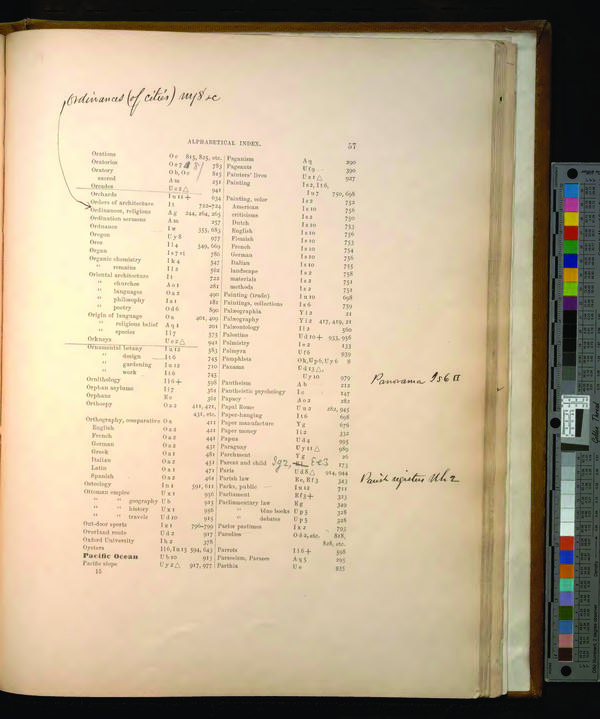 Ordinances (of cities)
ALPHABETICAL INDEX. 57
Orations Oe 815, 825, etc.
Oratorios 783
Oratory Ob, Oe 815
sacred Am 251
Orcades Ue2△ 941
Orchards Iu11+ 634
Orders of architecture It 722-724
Ordinances, religious Ag 244, 264, 265
Ordination sermons Am 257
Ordnance Iw 555, 683
Oregon Uy8 977
Ores Il4 549, 669
Organ 786
Organic chemistry Ik4 547
" remains Il2 562
Oriental architecture It 722
" churches Ao1 281
" languages Oa2 490
" philosophy Ia1 182
" poetry Od6 890
Origin of language Oa 401, 409
" religious belief Aq1 201
" species Il7 575
Orkneys Ue2△ 941
Ornamental botany Iu12 583
" design It6 745
" gardening Iu12 710
" work It6 743
Ornithology Il6+ 598
Orphan asylums Ii7 361
Orphans Ee 361
Orthoepy Oa2 411, 421,
431, etc.
Orthography, comparative Oa 411
English Oa2 421
French Oa2 441
German Oa2 431
Greek Oa1 481
Italian Oa2 451
Latin Oa1 471
Spanish Oa2 461
Osteology In1 591, 611
Ottoman empire Ux1 956
" " geography Ub 915
" " history Ux1 956
" " travels Ud10 915
Out-door sports Ix1 796-799
Overland route Ud2 917
Oxford University Ih2 378
Oysters Il6, Iu13 594, 643
Pacific Ocean Ub10 915
Pacific slope Uy2△ 917, 977
15
Paganism Aq 290
Pageants Uf9 390
Painters' lives Uz1△ 927
Painting Is2, It6,
Iu7 750, 698
Painting, color Is2 752
American Is10 756
criticisms Is2 750
Dutch Is10 753
English Is10 756
Flemish Is10 753
French Is10 754
German Is10 756
Italian Is10 755
landscape Is2 758
materials Is2 751
methods Is2 751
Painting (trade) Iu10 698
Paintings, collections Is6 759
Palæographia Yi2 21
Palæography Yi2 417, 419, 21
Palæontology Il2 560
Palestine Ud10+ 933, 956
Palmistry Ie2 133
Palmyra Uf6 939
Pamphlets Ok, Uy6, Uy6 8
Panama Ud13△,
Uy10 979
Pantheism Ab 212
Pantheistic psychology Ie 147
Papacy Ao2 282
Papal Rome Uu2 282, 945
Paper-hanging It6 698
Paper manufacture Yg 676
Paper money Ii2 332
Papua Ud4 995
Paraguay Uy11△ 989
Parchment Yg 26
Parent and child Ig2, Ee3 173
Paris Ud8△ 914, 944
Parish law Ee, Rf3 343
Parks, public Iu12 711
Parliament Rf3+ 323
Parliamentary law Rg 329
" blue books Up5 328
" debates Up5 328
Parlor pastimes Ix2 793
Parodies Od2, etc. 818,
828, etc.
Parrots Il6+ 598
Parseeism, Parsees Aq5 295
Parthia Ue 935
Panorama Is6
Parish registers Uh2